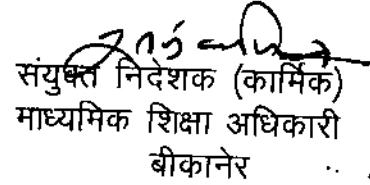 संयुक्त निदेशक (कार्मिक)
माध्यमिक शिक्षा अधिकारी
बीकानेर